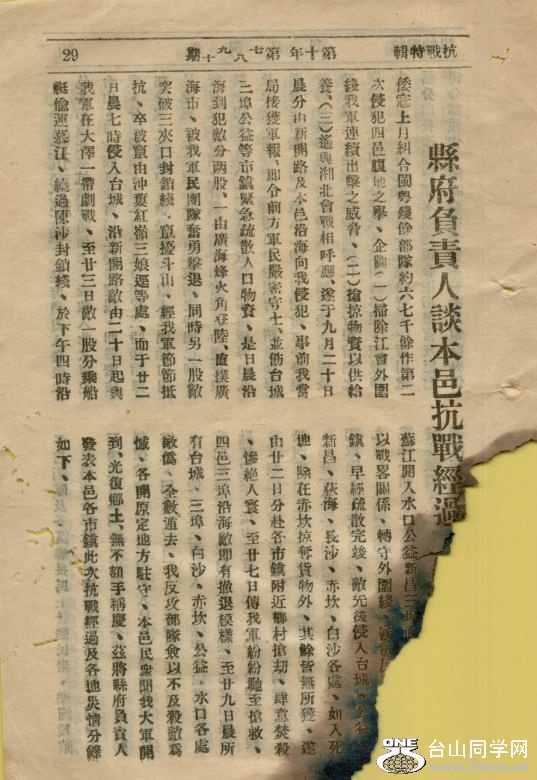 抗戰特輯 第十年第七八九十期 29
縣府負責人談本邑抗戰經過
倭寇上月糾合閩粤殘餘部隊約六七千餘作第二
次侵犯四邑腹地之舉、企圖(一)掃除江會外圍
綫我軍連續出擊之威脅、(二)搶掠物資以供給
養、(三)遙與湘北會戰相呼應、遂于九月二十日
晨分由新開路及本邑沿海向我侵犯、事前我當
局接獲軍報、即令前方軍民嚴密守土、並飭台城
三埠公益等市鎮緊急疏散人口物資、是日晨沿
海到犯敵分兩股、一由廣海烽火角登陸、直撲廣
海市、被我軍民團隊奮勇擊退、同時另一股敵
突破三夾口封鎖綫、竄擾斗山、經我軍節節抵
抗、卒被竄由沖蔞紅嶺三娘逕等處、而于廿二
日晨七時侵入台城、沿新開路敵由二十日起與
我軍在大澤一帶劇戰、至廿三日敵一股分乘船
艇偷運蘇江、繞過陳沙封鎖綫、於下午四時沿
蘇江開入水口公益新昌三埠
以戰畧關係、轉守外圍綫、
鎮、早經疏散完竣、敵先後侵入台城、公益
新昌、荻海、長沙、赤坎、白沙各處、如入死
地、除在赤坎掠奪貨物外、其餘皆無所獲、遂
由廿二日分赴各市鎮附近鄉村搶刧、肆意焚殺
、慘絶人寰、至廿七日傳我軍紛紛馳至搶救、
四邑三埠沿海敵即有撤退模樣、至廿九日晨所
有台城、三埠、白沙、赤坎、公益、水口各處
敵僞、全數遁去、我反攻部隊僉以不及殺敵爲
憾、各開原定地方駐守、本邑民衆聞我大軍開
到、光復鄉土、無不額手稱慶、茲將縣府負責人
發表本邑各市鎮此次抗戰經過及各地災情分錄
如下、
ONE 台山同学网
www.tsone.cn